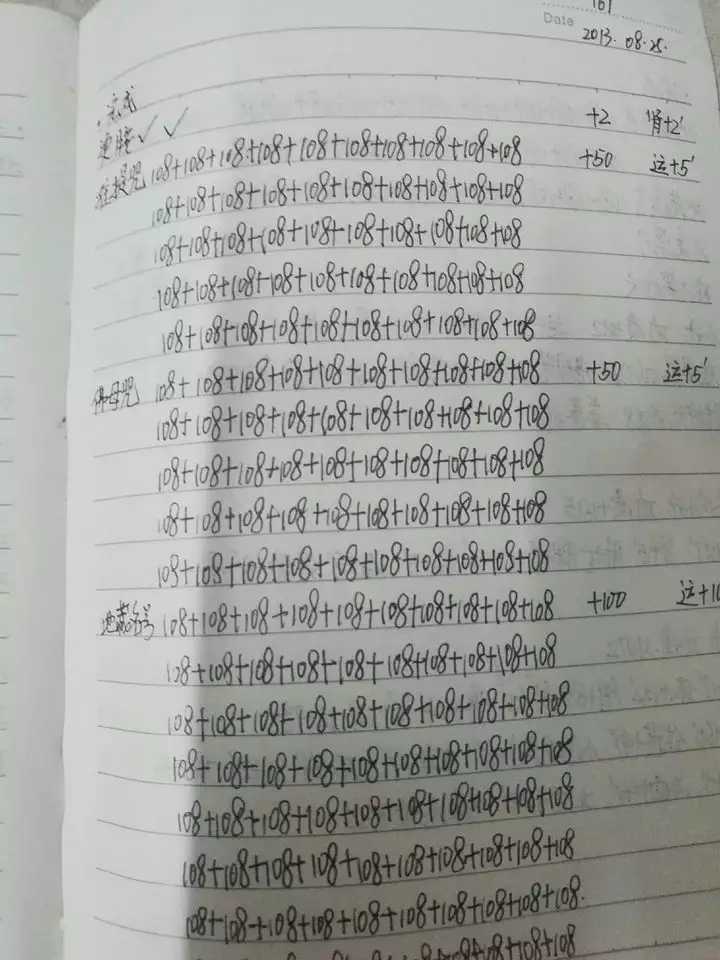 101
Date 2013. 08. 25.
·完成
+2 肾+2'
准提咒 108+108+108+108+108+108+108+108+108+108 +50 运+5'
108+108+108+108+108+108+108+108+108+108
108+108+108+108+108+108+108+108+108+108
108+108+108+108+108+108+108+108+108+108
108+108+108+108+108+108+108+108+108+108
佛母咒 108+108+108+108+108+108+108+108+108+108 +50 运+5'
108+108+108+108+108+108+108+108+108+108
108+108+108+108+108+108+108+108+108+108
108+108+108+108+108+108+108+108+108+108
108+108+108+108+108+108+108+108+108+108
地藏名号 108+108+108+108+108+108+108+108+108+108 +100 运+10
108+108+108+108+108+108+108+108+108+108
108+108+108+108+108+108+108+108+108+108
108+108+108+108+108+108+108+108+108+108
108+108+108+108+108+108+108+108+108+108
108+108+108+108+108+108+108+108+108+108
108+108+108+108+108+108+108+108+108+108.
108+108+108+108